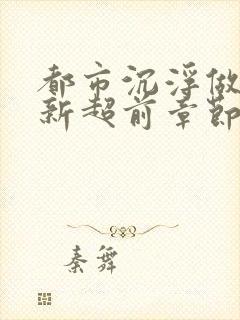 都市沉浮做
新超前章節
秦舞